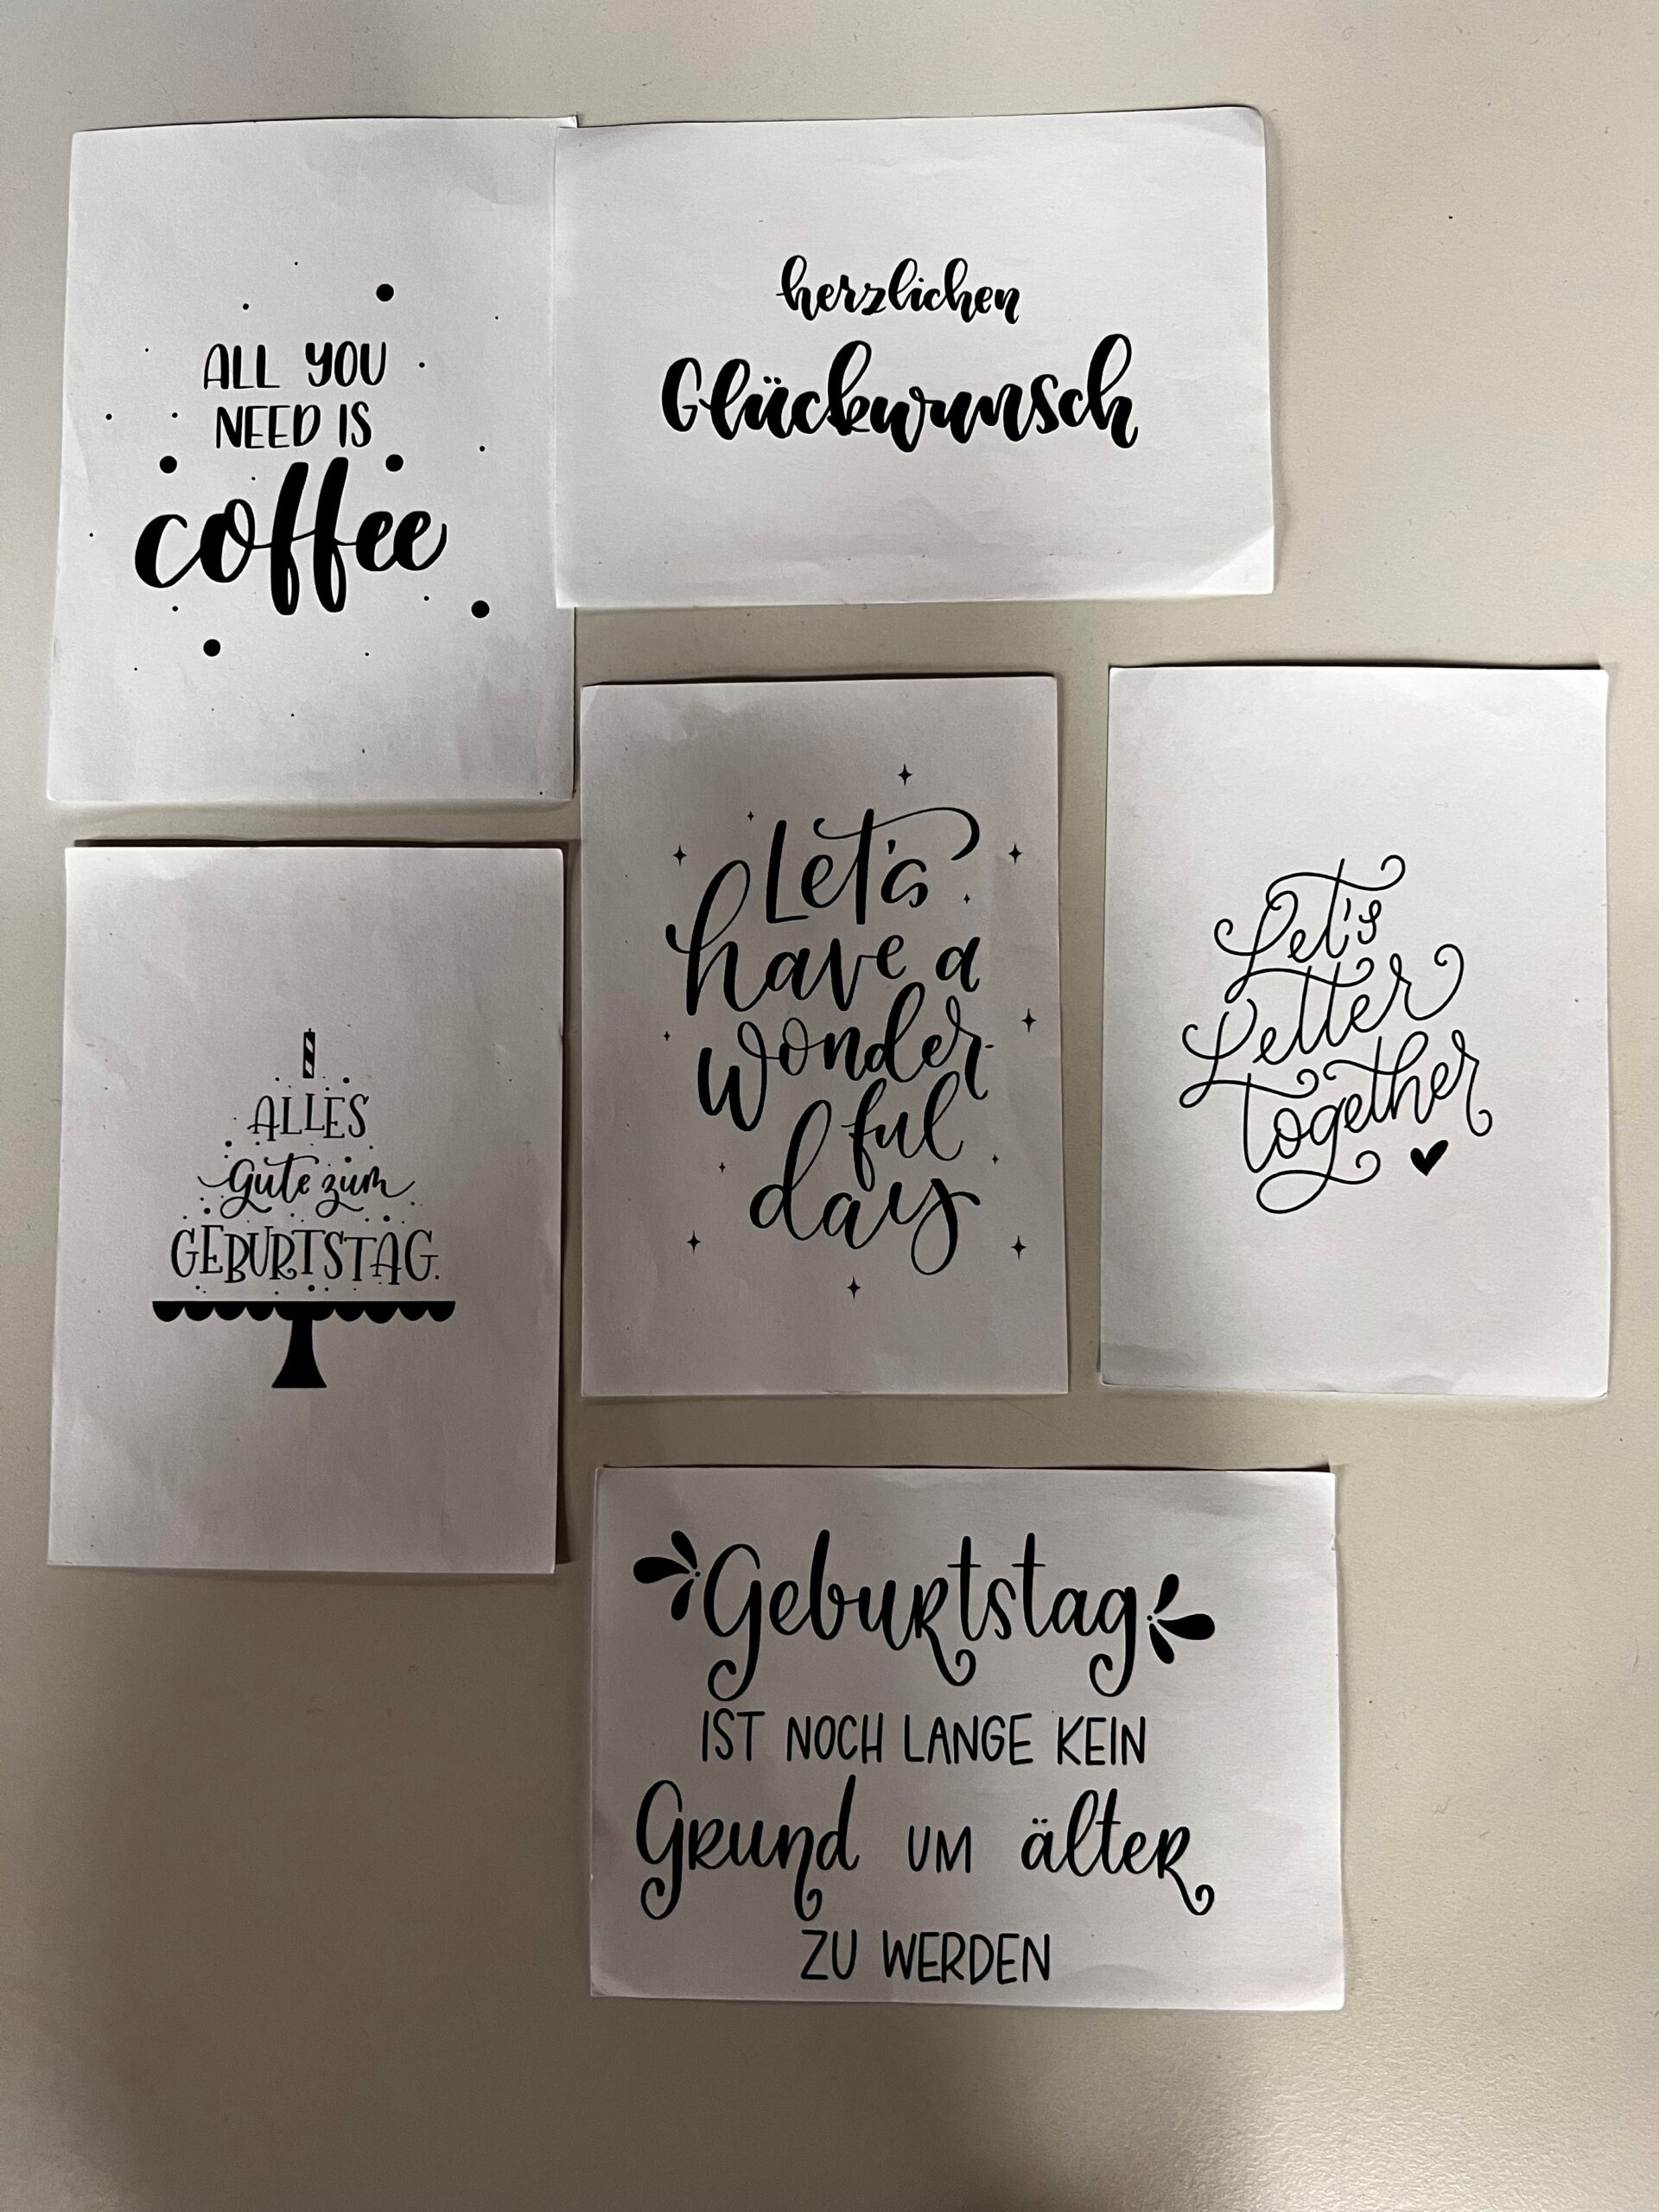 ALL YOU
NEED IS
coffee
herzlichen
Glückwunsch
ALLES
gute zum
GEBURTSTAG.
Let's
have a
wonder-
ful
day
Let's
Letter
together
Geburtstag
IST NOCH LANGE KEIN
Grund UM älter
ZU WERDEN